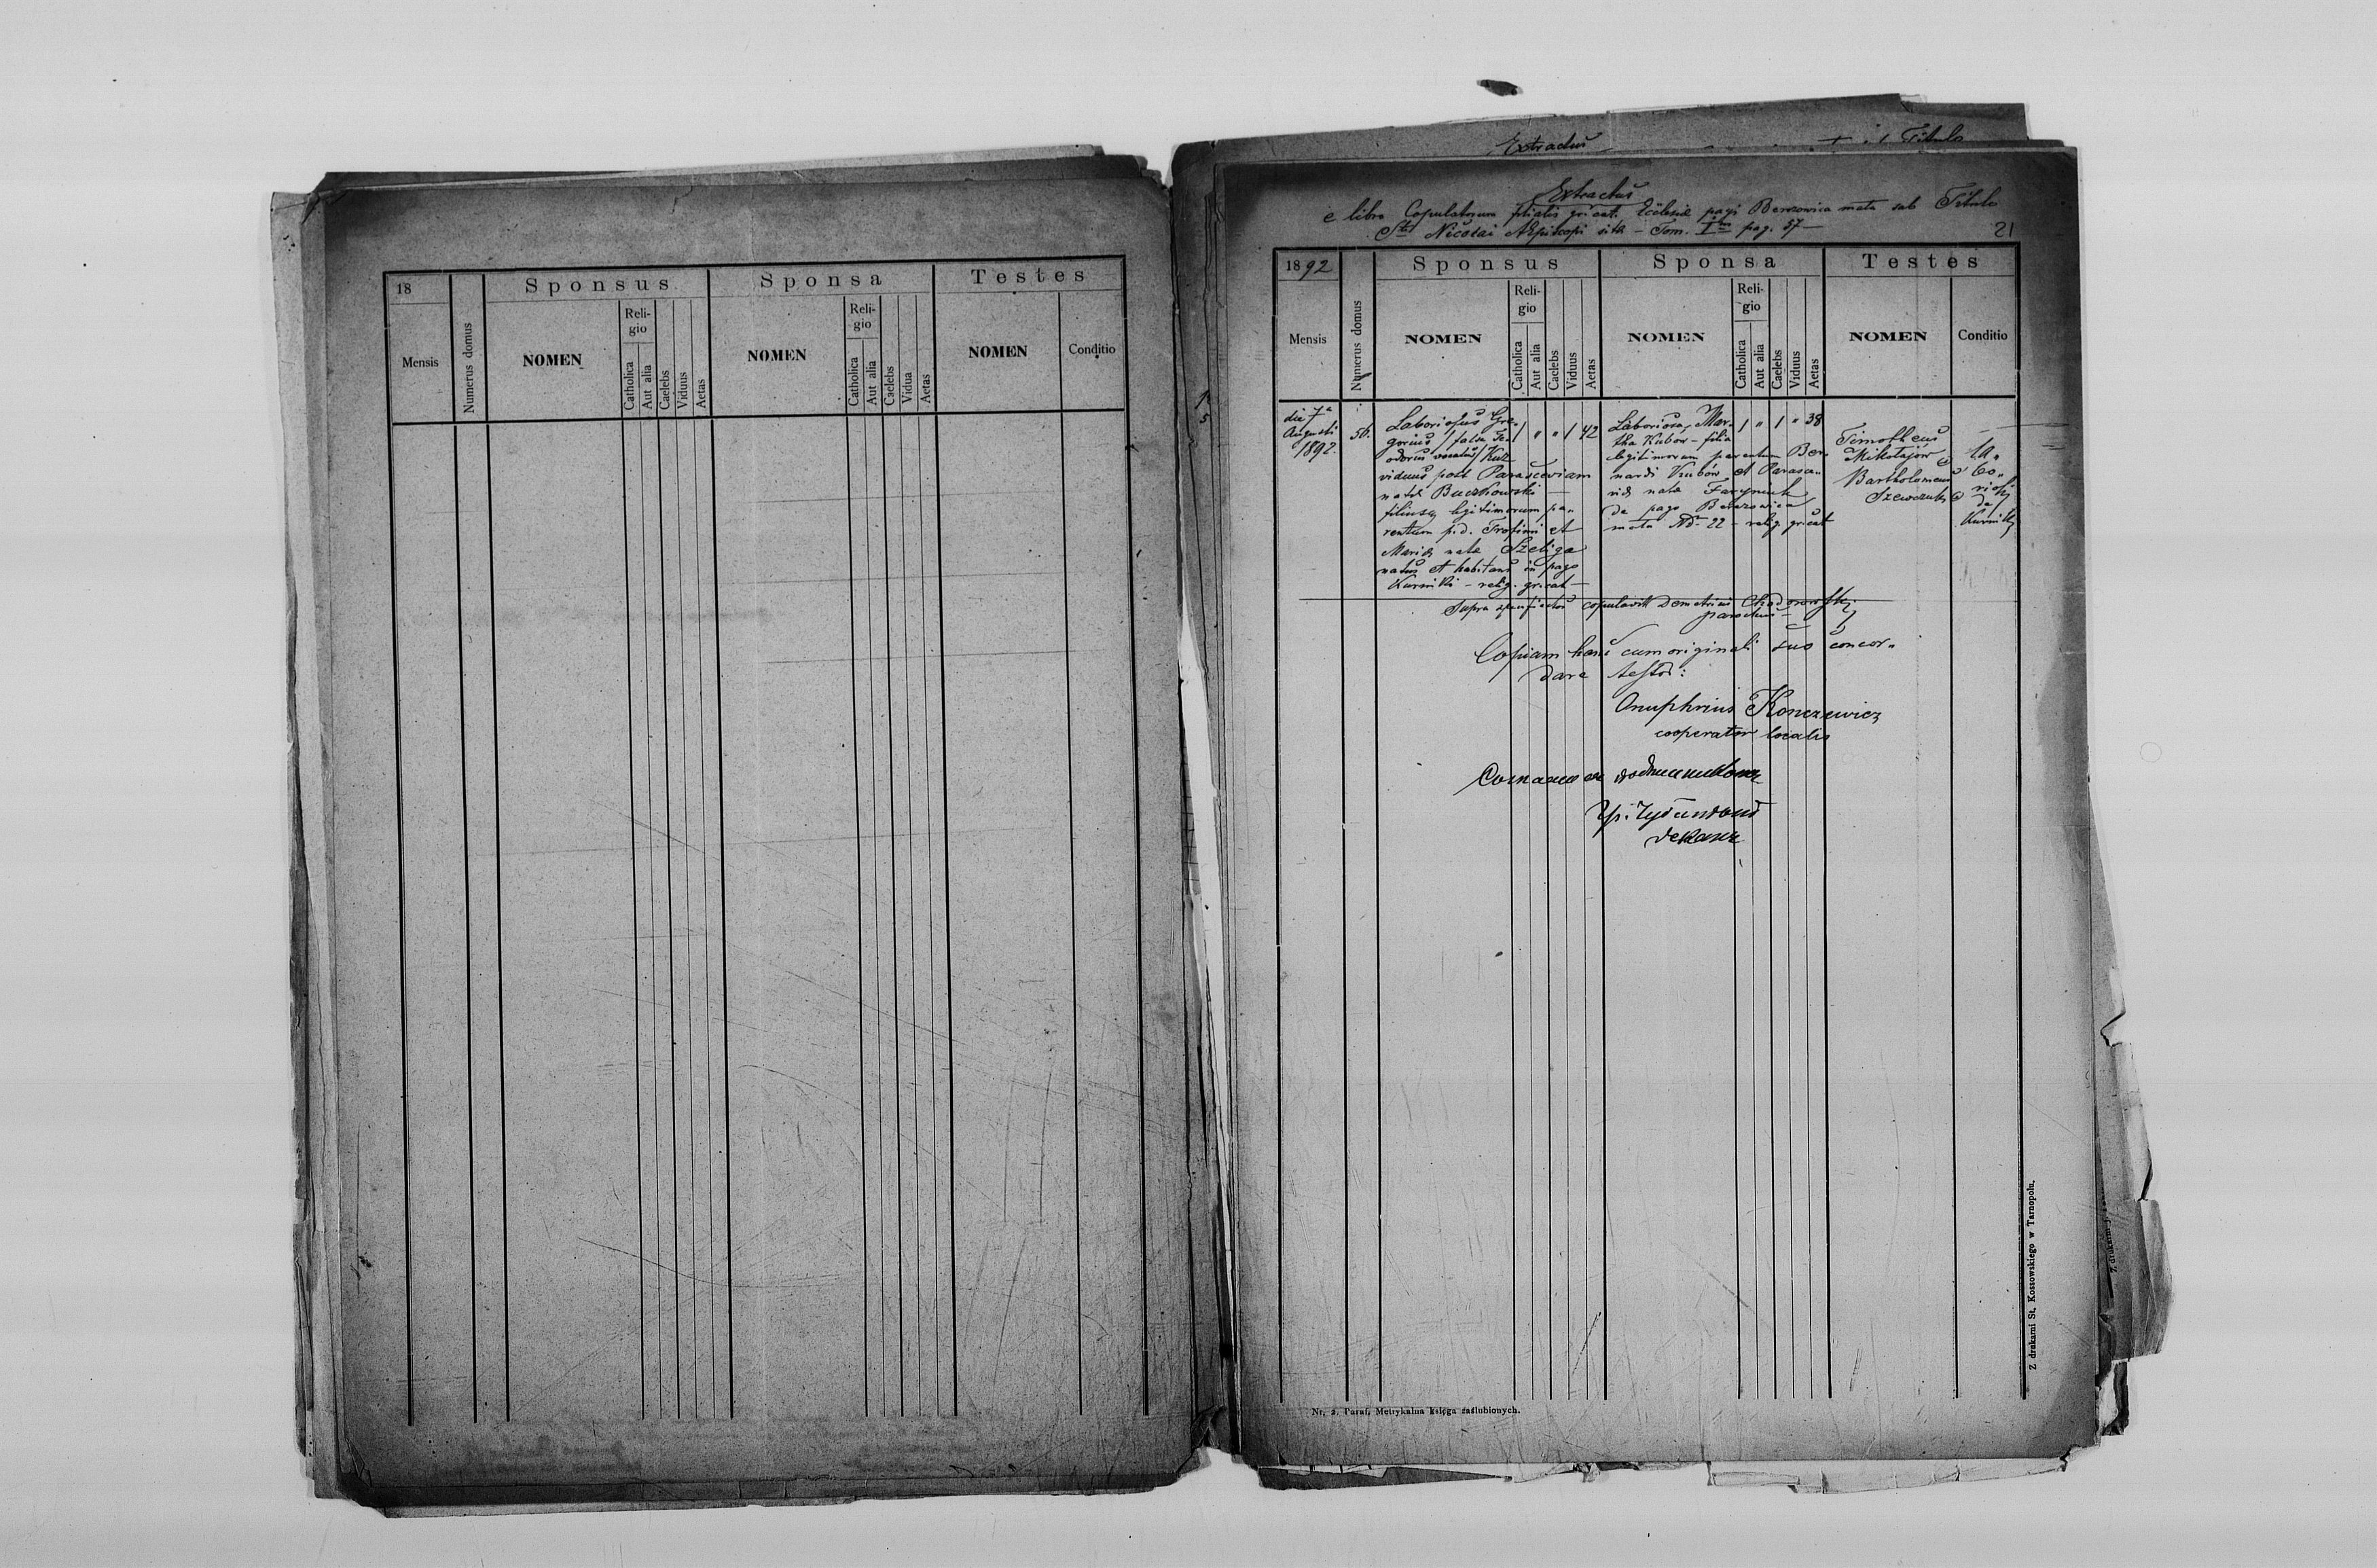 18
Sponsus
Sponsa
Testes
Mensis
Numerus domus
NOMEN
Religio
Catholica
Aut alia
Caelebs
Viduus
Aetas
NOMEN
Religio
Catholica
Aut alia
Caelebs
Vidua
Aetas
NOMEN
Conditio
Extractus
Titulo
Extractus
e libro Copulatorum filialis gr. cat. Ecclesiæ pagi Berezowica mała sub Titulo
Sti Nicolai AEpiscopi sita – Tom. I pag. 37 –
21
1892
Sponsus
Sponsa
Testes
Mensis
Numerus domus
NOMEN
Reli-
gio
Catholica
Aut alia
Caelebs
Viduus
Aetas
NOMEN
Reli-
gio
Catholica
Aut alia
Caelebs
Viduus
Aetas
NOMEN
Conditio
die 7a
Augusti
1892.
56.
Laboriosus Gre-
gorius /falso Te-
odorus vocatus/ Kuz
viduus post Parasceviam
nata Buczkowski –
filiusq legitimorum pa-
rentum p.d. Trofimi et
Mariæ nata Szeliga
natus et habitans in pago
Kurniki – relig. gr. cat –
1 " " 1 42
Laboriosa, Mar-
tha Kubow – filia
legitimorum parentum Ber-
nardi Kubów et Parasce-
viæ nata Farynink
de pago Berezowica
mała Nd. 22 – relig. gr. cat
1 " 1 " 38
Timotheus
Mikołajów
Bartholomeus
Szewczuk
La-
bo-
riosi
de
Kurniki
Supra copulavit Demetrius
parochus
Copiam hanc cum originali suo concor-
dare testor:
Onuphrius Konczewicz
cooperator localis
деканъ
Nr. 2. Paraf. Metrykalna księga zaślubionych.
Z drukarni St. Kossowskiego w Tarnopolu.